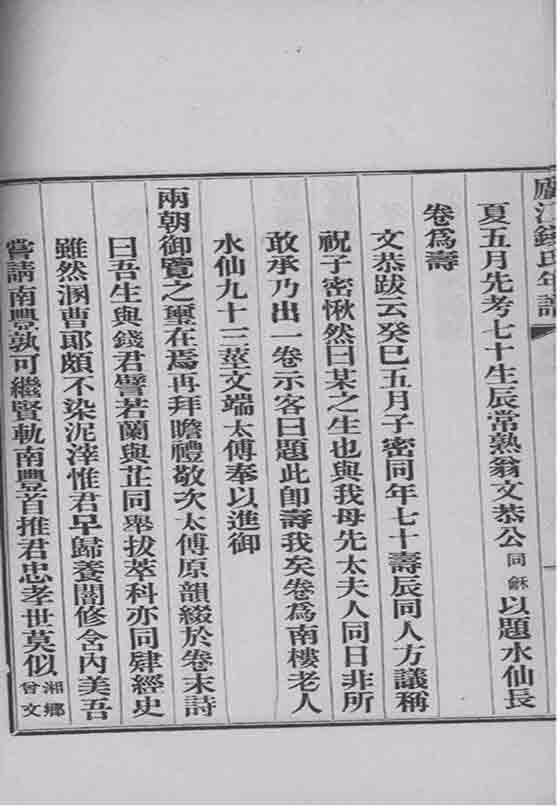 廬江錢氏年譜
夏五月先考七十生辰常熟翁文恭公同龢以題水仙長
卷爲壽
文恭跋云癸巳五月子密同年七十壽辰同人方議稱
祝子密愀然曰某之生也與我母先太夫人同日非所
敢承乃出一卷示客曰題此卽壽我矣卷爲南樓老人
水仙九十三莖文端太傅奉以進御
兩朝御覽之璽在焉再拜瞻禮敬次太傅原韻綴於卷末詩
曰吾生與錢君譬若蘭與芷同舉拔萃科亦同肄經史
雖然溷曹郎頗不染泥滓惟君早歸養闇修含內美吾
嘗請南豐孰可繼賢軌南豐首推君忠孝世莫似湘鄉曾文